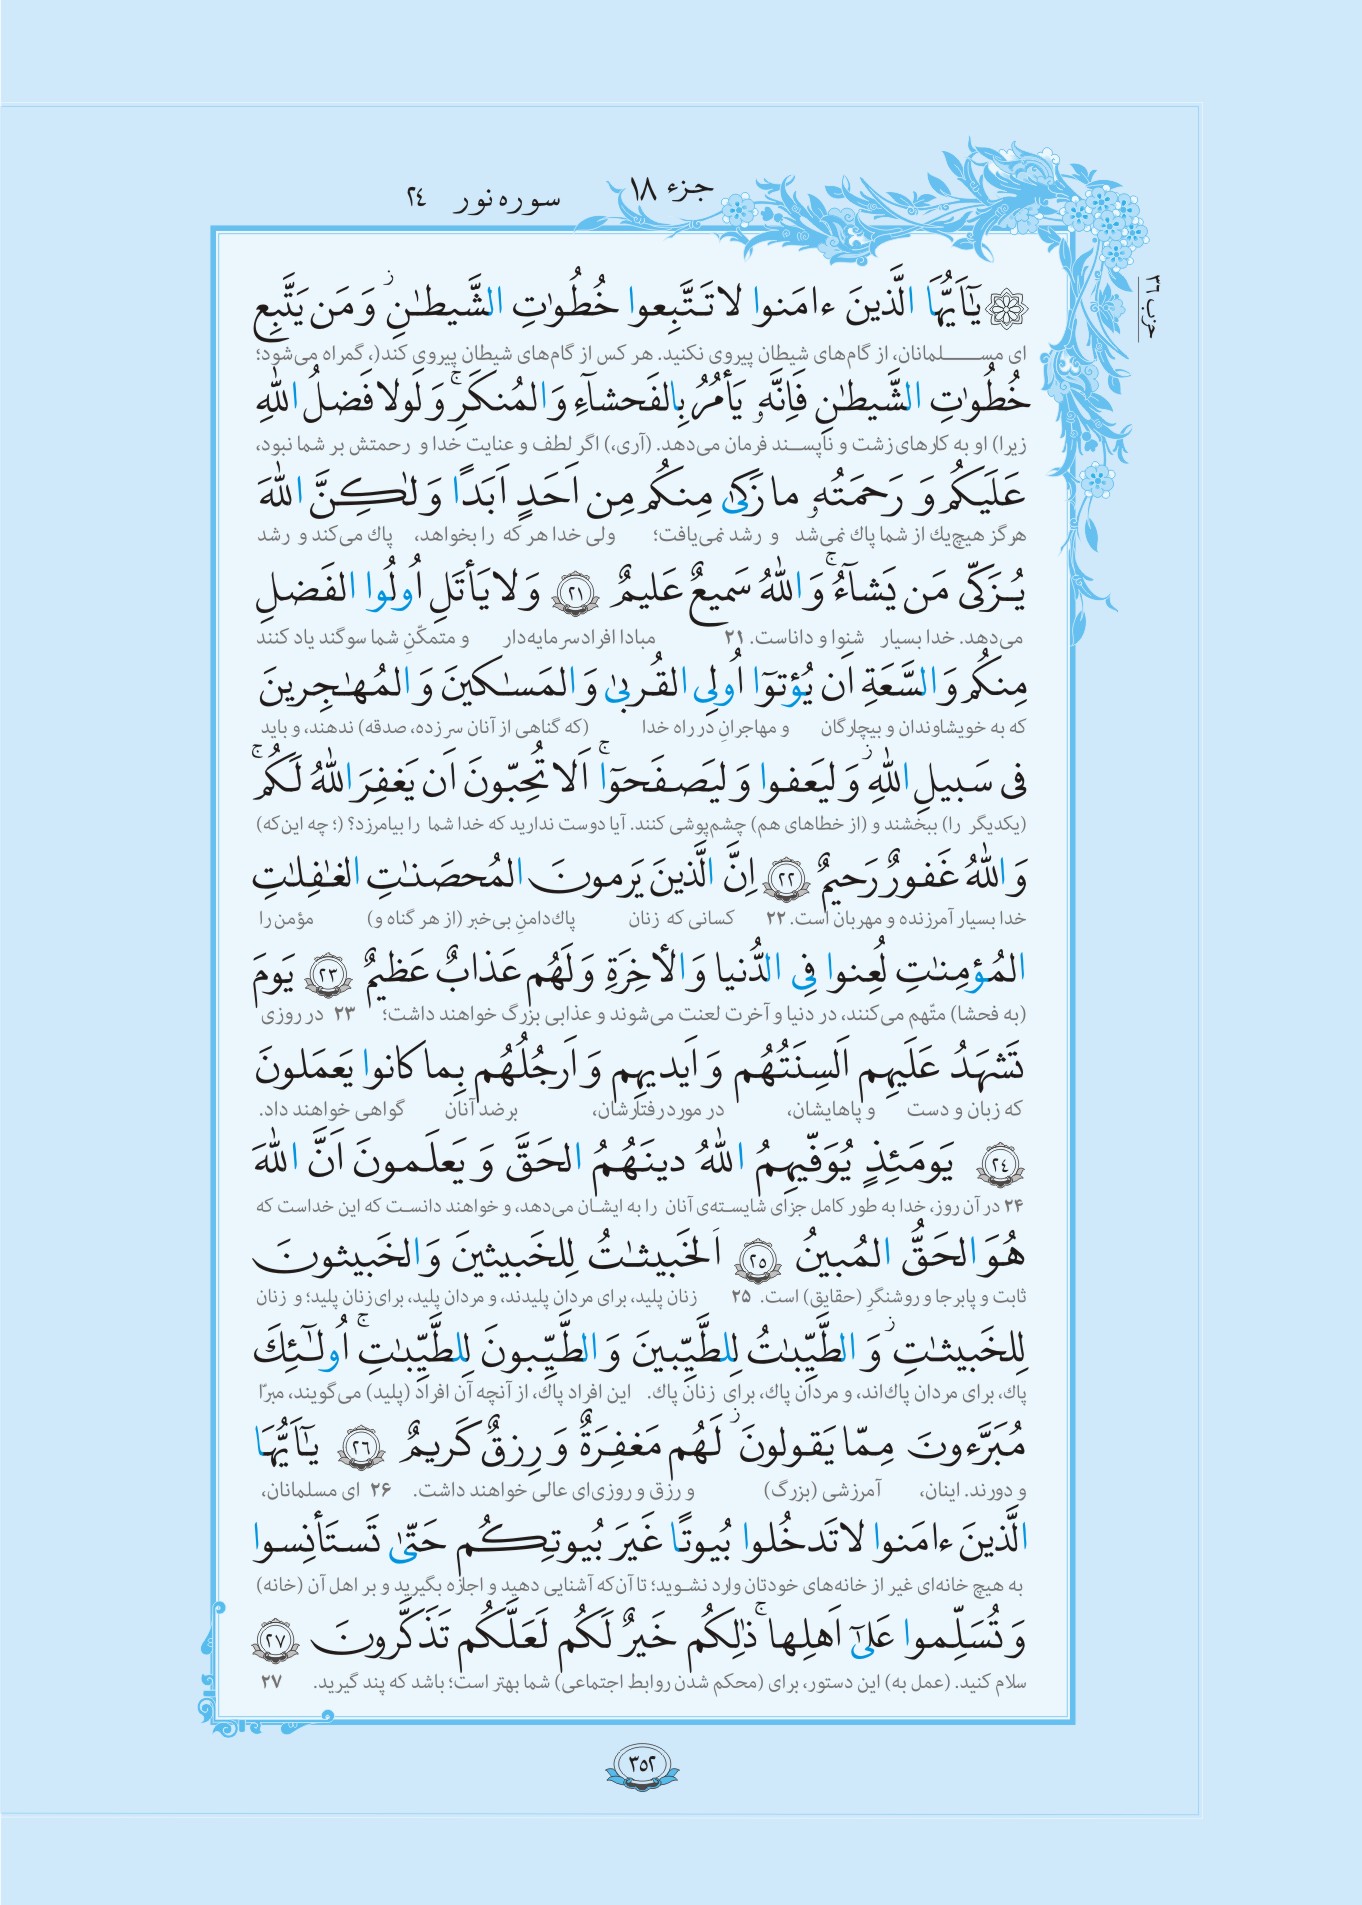 جزء ۱۸
سوره نور ۲٤
حزب ۳٦
يٰٓاَيُّهَا الَّذينَ ءامَنوا لا تَتَّبِعوا خُطُوٰتِ الشَّيطٰنِ ۚ وَ مَن يَتَّبِع
ای مسلمانان، از گام‌های شیطان پیروی نکنید. هر کس از گام‌های شیطان پیروی کند(، گمراه می‌شود؛
خُطُوٰتِ الشَّيطٰنِ فَاِنَّهٗ يَأمُرُ بِالفَحشآءِ وَ المُنكَرِ ۚ وَ لَولا فَضلُ اللّٰهِ
زیرا) او به کارهای زشت و ناپسند فرمان می‌دهد. (آری،) اگر لطف و عنایت خدا و رحمتش بر شما نبود،
عَلَيكُم وَ رَحمَتُهٗ ما زَكىٰ مِنكُم مِن اَحَدٍ اَبَدًا وَ لٰكِنَّ اللّٰهَ
هرگز هیچ‌یك از شما پاك نمی‌شد و رشد نمی‌یافت؛ ولی خدا هر که را بخواهد، پاك می‌کند و رشد
يُزَكّى مَن يَشآءُ ۚ وَ اللّٰهُ سَميعٌ عَليمٌ ﴿۲۱﴾ وَ لا يَأتَلِ اُولُوا الفَضلِ
می‌دهد. خدا بسیار شنوا و داناست. ۲۱ مبادا افراد سرمایه‌دار و متمکّنِ شما سوگند یاد کنند
مِنكُم وَ السَّعَةِ اَن يُؤتوٓا اُولِى القُربىٰ وَ المَسٰكينَ وَ المُهٰجِرينَ
که به خویشاوندان و بیچارگان و مهاجرانِ در راه خدا (که گناهی از آنان سر زده، صدقه) ندهند، و باید
فى سَبيلِ اللّٰهِ ۖ وَ ليَعفوا وَ ليَصفَحوٓا ۗ اَلا تُحِبّونَ اَن يَغفِرَ اللّٰهُ لَكُم ۗ
(یکدیگر را) ببخشند و (از خطاهای هم) چشم‌پوشی کنند. آیا دوست ندارید که خدا شما را بیامرزد؟ (؛ چه این‌که)
وَ اللّٰهُ غَفورٌ رَحيمٌ ﴿۲۲﴾ اِنَّ الَّذينَ يَرمونَ المُحصَنٰتِ الغٰفِلٰتِ
خدا بسیار آمرزنده و مهربان است. ۲۲ کسانی که زنان پاك‌دامنِ بی‌خبر (از هر گناه و) مؤمن را
المُؤمِنٰتِ لُعِنوا فِى الدُّنيا وَ الأخِرَةِ وَ لَهُم عَذابٌ عَظيمٌ ﴿۲۳﴾ يَومَ
(به فحشا) متّهم می‌کنند، در دنیا و آخرت لعنت می‌شوند و عذابی بزرگ خواهند داشت؛ ۲۳ در روزی
تَشهَدُ عَلَيهِم اَلسِنَتُهُم وَ اَيديهِم وَ اَرجُلُهُم بِما كانوا يَعمَلونَ
که زبان و دست و پاهایشان، در مورد رفتارشان، بر ضد آنان گواهی خواهند داد.
﴿۲٤﴾ يَومَئِذٍ يُوَفّيهِمُ اللّٰهُ دينَهُمُ الحَقَّ وَ يَعلَمونَ اَنَّ اللّٰهَ
۲۴ در آن روز، خدا به طور کامل جزای شایسته‌ی آنان را به ایشان می‌دهد، و خواهند دانست که این خداست که
هُوَ الحَقُّ المُبينُ ﴿۲۵﴾ اَلخَبيثٰتُ لِلخَبيثينَ وَ الخَبيثونَ
ثابت و پابرجا و روشنگرِ (حقایق) است. ۲۵ زنان پلید، برای مردان پلیدند، و مردان پلید، برای زنان پلید؛ و زنان
لِلخَبيثٰتِ ۖ وَ الطَّيِّبٰتُ لِلطَّيِّبينَ وَ الطَّيِّبونَ لِلطَّيِّبٰتِ ۚ اُولٰٓئِكَ
پاك، برای مردان پاك‌اند، و مردان پاك، برای زنان پاك. این افراد پاك، از آنچه آن افراد (پلید) می‌گویند، مبرّا
مُبَرَّءونَ مِمّا يَقولونَ ۖ لَهُم مَغفِرَةٌ وَ رِزقٌ كَريمٌ ﴿۲٦﴾ يٰٓاَيُّهَا
و دورند. اینان، آمرزشی (بزرگ) و رزق و روزی‌ای عالی خواهند داشت. ۲۶ ای مسلمانان،
الَّذينَ ءامَنوا لا تَدخُلوا بُيوتًا غَيرَ بُيوتِكُم حَتّىٰ تَستَأنِسوا
به هیچ خانه‌ای غیر از خانه‌های خودتان وارد نشوید؛ تا آن‌که آشنایی دهید و اجازه بگیرید و بر اهل آن (خانه)
وَ تُسَلِّموا عَلىٰٓ اَهلِها ۚ ذٰلِكُم خَيرٌ لَكُم لَعَلَّكُم تَذَكَّرونَ ﴿۲۷﴾
سلام کنید. (عمل به) این دستور، برای (محکم شدن روابط اجتماعی) شما بهتر است؛ باشد که پند گیرید. ۲۷
۳۵۲